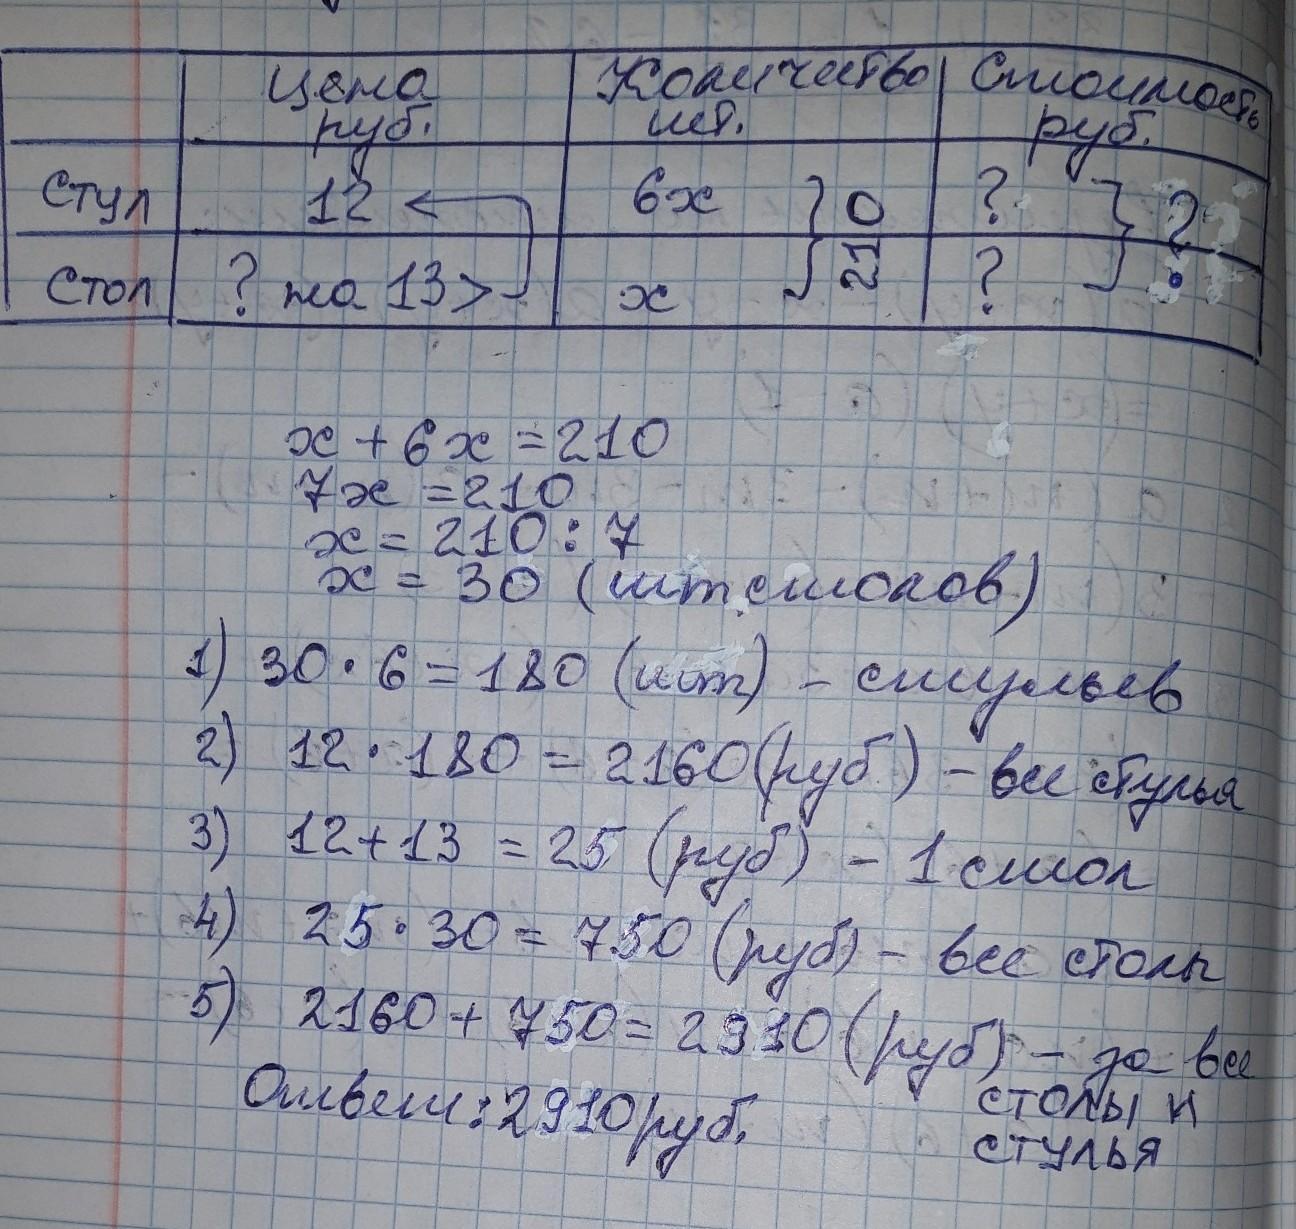 Цена руб. Количество шт. Стоимость руб.
Стул 12 6х 210 ? ?
Стол ? на 13 > х ?
х + 6х = 210
7х = 210
х = 210 : 7
х = 30 (шт столов)
1) 30 · 6 = 180 (шт) - стульев
2) 12 · 180 = 2160 (руб.) - все стулья
3) 12 + 13 = 25 (руб) - 1 стол
4) 25 · 30 = 750 (руб) - все столы
5) 2160 + 750 = 2910 (руб) - за все
столы и
стулья
Ответ: 2910 руб.